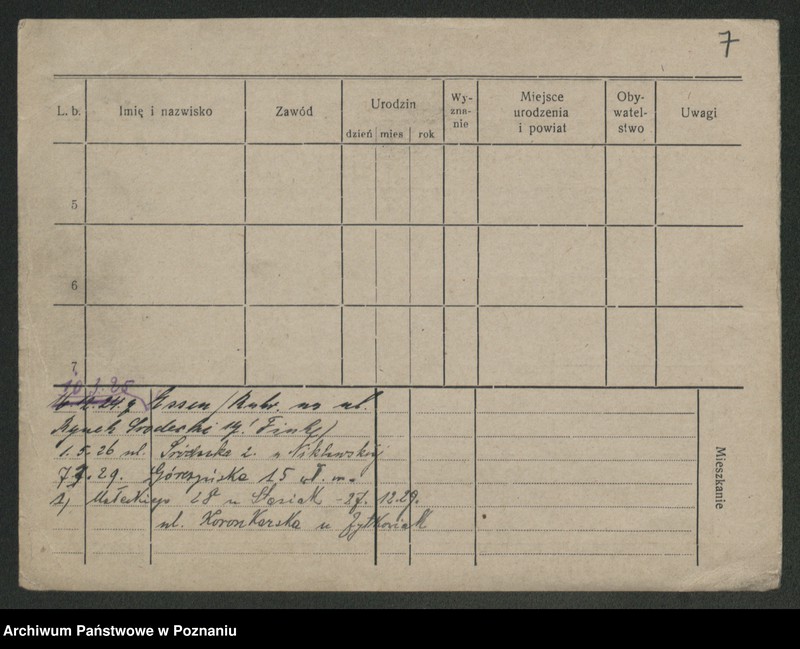 7
L. b. Imię i nazwisko Zawód Urodzin dzień mies rok Wy-
zna-
nie Miejsce
urodzenia
i powiat Oby-
watel-
stwo Uwagi
5
6
7
10.1.25
Essen / Ruhr. na ul.
Rynek Środecki
1.5.26 ul. Śródecka 2. u Niklewskiej
29. Górczyńska 15
Małeckiego 28 u Stasiak - 27.12.29.
ul. Koronkarska u Żytkowiak
Mieszkanie
Archiwum Państwowe w Poznaniu